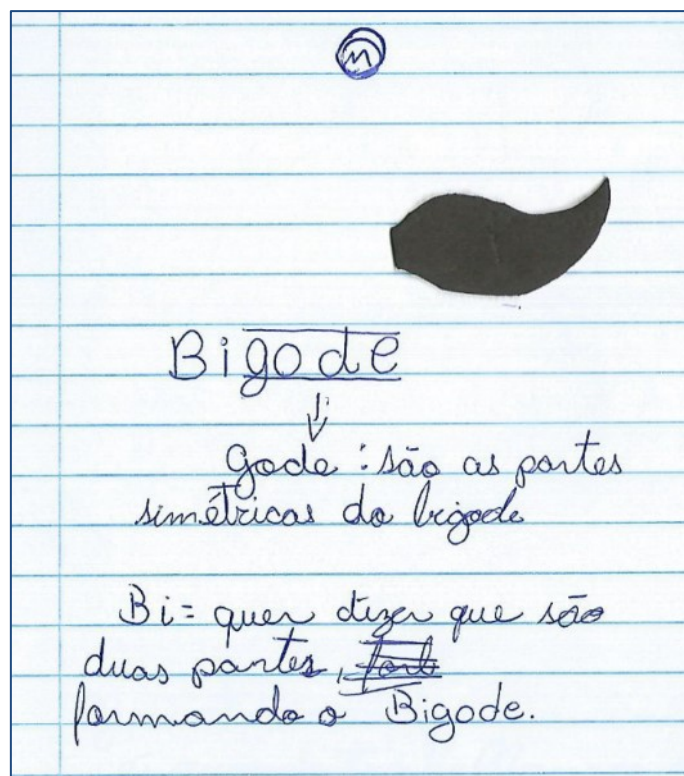 M
Bigode
Gode: são as partes
simétricas do bigode
Bi= quer dizer que são
duas partes,
formando o Bigode.